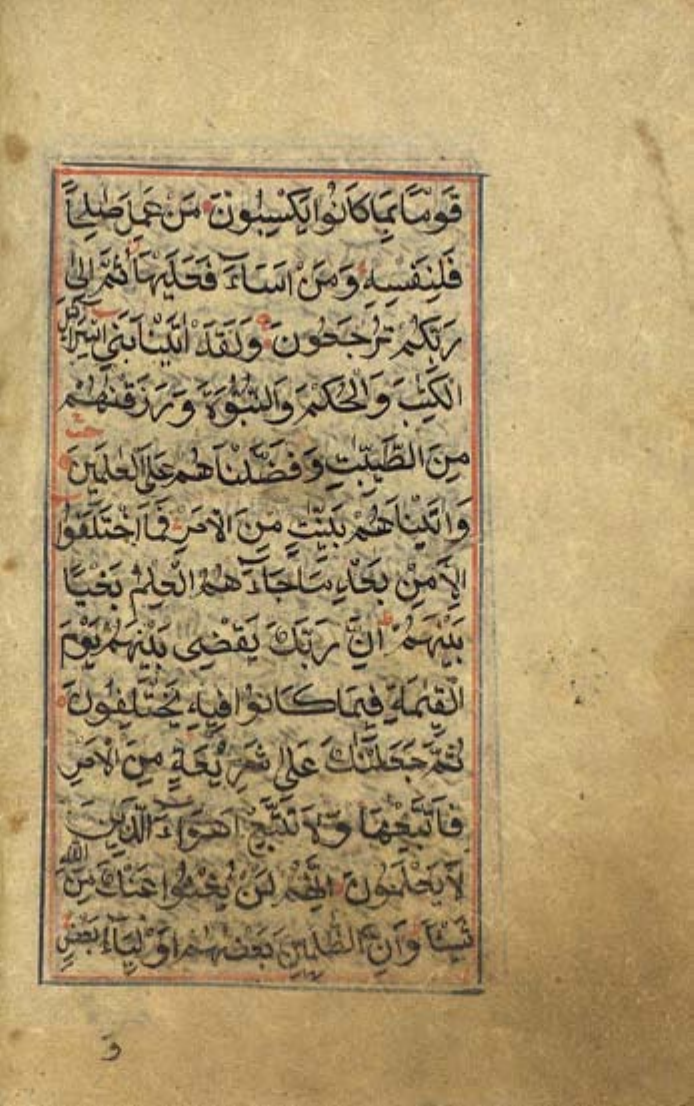 قَوْمًا بِمَا كَانُوا يَكْسِبُونَ مَنْ عَمِلَ صٰلِحًا
فَلِنَفْسِهٖ وَمَنْ اَسَآءَ فَعَلَيْهَا ثُمَّ اِلٰى
رَبِّكُمْ تُرْجَعُونَ وَلَقَدْ اٰتَيْنَا بَنِي اِسْرَآئِيلَ
الْكِتٰبَ وَالْحُكْمَ وَالنُّبُوَّةَ وَرَزَقْنٰهُمْ
مِنَ الطَّيِّبٰتِ وَفَضَّلْنَاهُمْ عَلَى الْعٰلَمِينَ
وَاٰتَيْنَاهُمْ بَيِّنٰتٍ مِنَ الْاَمْرِ فَمَا اخْتَلَفُوا
اِلَّا مِنْ بَعْدِ مَا جَآءَهُمُ الْعِلْمُ بَغْيًا
بَيْنَهُمْ اِنَّ رَبَّكَ يَقْضِي بَيْنَهُمْ يَوْمَ
الْقِيٰمَةِ فِيمَا كَانُوا فِيهِ يَخْتَلِفُونَ
ثُمَّ جَعَلْنٰكَ عَلٰى شَرِيعَةٍ مِنَ الْاَمْرِ
فَاتَّبِعْهَا وَلَا تَتَّبِعْ اَهْوَآءَ الَّذِينَ
لَا يَعْلَمُونَ اِنَّهُمْ لَنْ يُغْنُوا عَنْكَ مِنَ اللّٰهِ
شَيْئًا وَاِنَّ الظّٰلِمِينَ بَعْضُهُمْ اَوْلِيَآءُ بَعْضٍ
وَ